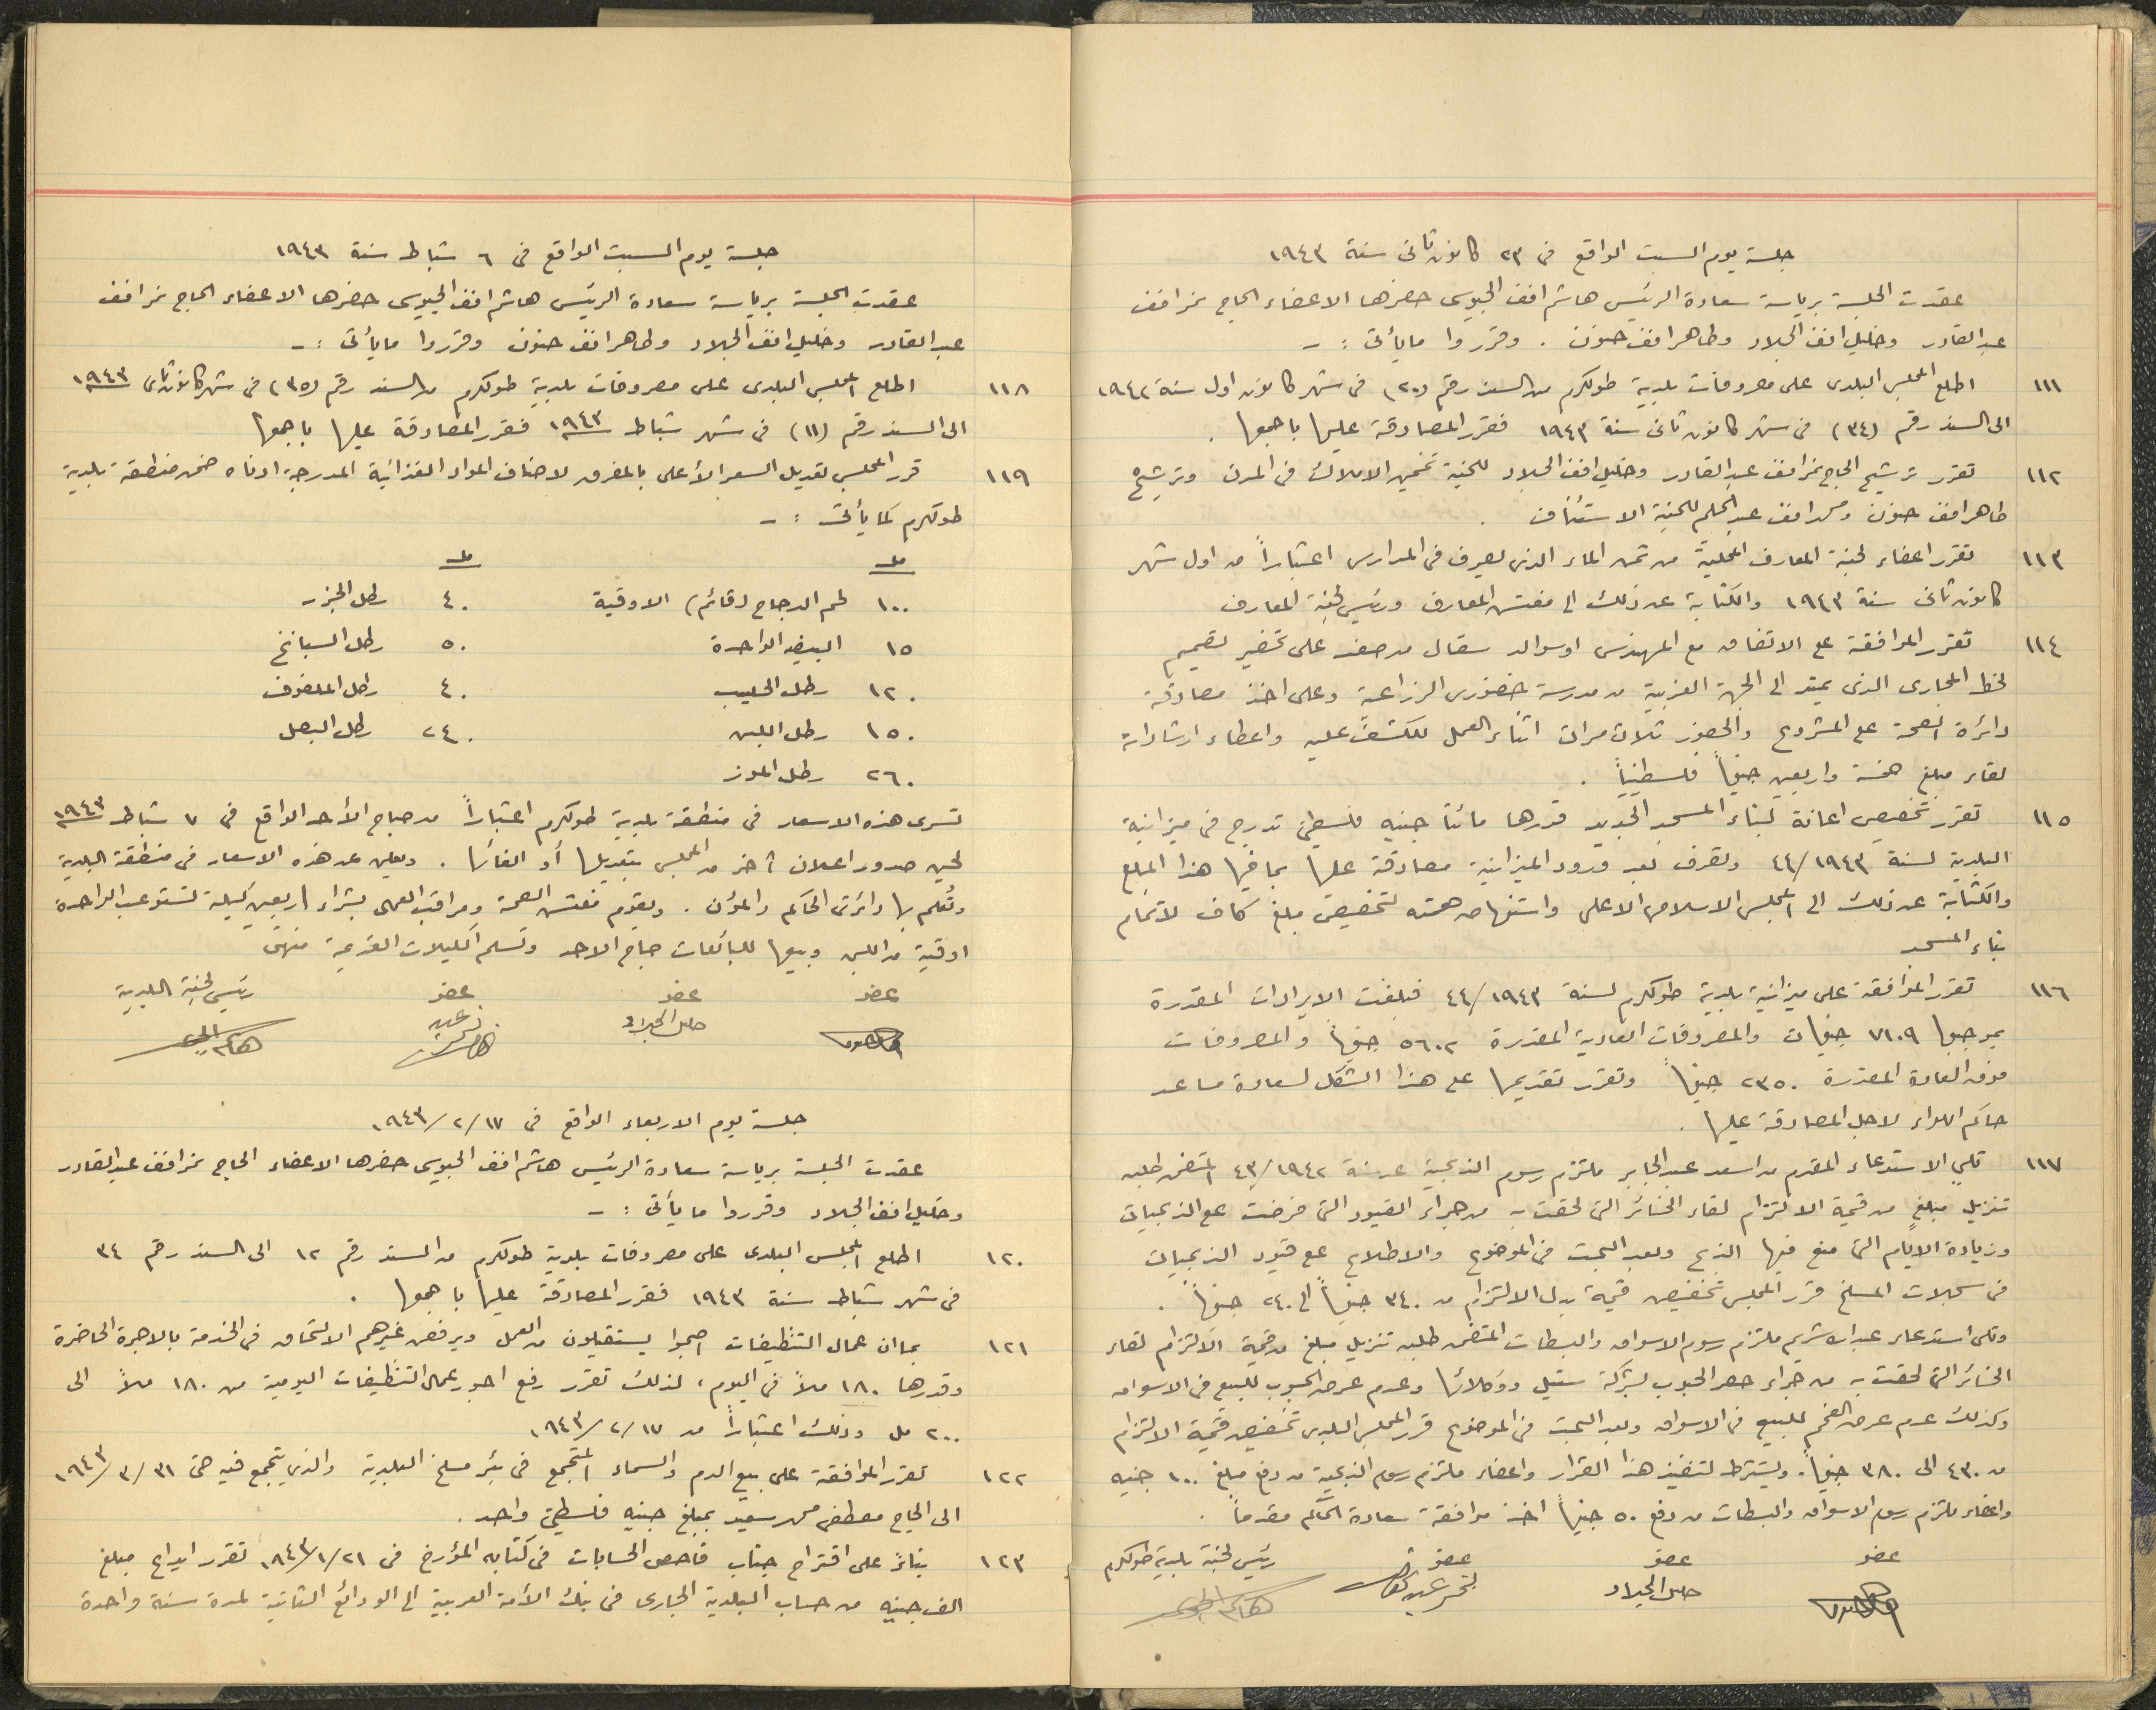 جلسة يوم السبت الواقع في ٢٣ كانون ثاني سنة ١٩٤٣
عقدت الجلسة برياسة سعادة الرئيس هاشم افندي الجيوسي حضرها الاعضاء الحاج نمر افندي
عبد القادر وخليل افندي الجلاد وطاهر افندي حنون . وقرروا ما يأتي : -
١١١ اطلع المجلس البلدي على مصروفات بلدية طولكرم من السند رقم (٢٠) في شهر كانون اول سنة ١٩٤٢
الى السند رقم (٣٤) في شهر كانون ثاني سنة ١٩٤٣ فقرر المصادقة عليها باجمعها .
١١٢ تقرر ترشيح الحاج نمر افندي عبد القادر وخليل افندي الجلاد للجنة تخمين الاملاك في المدن وترشيح
طاهر افندي حنون ومحمد افندي عبد الحليم للجنة الاستئناف .
١١٣ تقرر اعفاء لجنة المعارف المحلية من ثمن الماء الذي يصرف في المدارس اعتباراً من اول شهر
كانون ثاني سنة ١٩٤٣ والكتابة عن ذلك الى مفتش المعارف ورئيس لجنة المعارف
١١٤ تقرر الموافقة على الاتفاق مع المهندس اوسوالد سقال من صفد على تحضير تصميم
لخط المجاري الذي يمتد الى الجهة الغربية من مدرسة خضوري الزراعية وعلى اخذ مصادقة
دائرة الصحة على المشروع والحضور ثلاث مرات اثناء العمل للكشف عليه واعطاء ارشاداته
لقاء مبلغ خمسة واربعين جنيهاً فلسطينياً .
١١٥ تقرر تخصيص اعانة لبناء المسجد الجديد قدرها مائتا جنيه فلسطيني تدرج في ميزانية
البلدية لسنة ١٩٤٣/٤٤ وتصرف بعد ورود الميزانية مصادقة عليها بما فيها هذا المبلغ
والكتابة عن ذلك الى المجلس الاسلامي الاعلى واستنهاض همته لتخصيص مبلغ كاف لاتمام
بناء المسجد
١١٦ تقرر الموافقة على ميزانية بلدية طولكرم لسنة ١٩٤٣/٤٤ فبلغت الايرادات المقدرة
بموجبها ٧١٠٩ جنيهات والمصروفات العادية المقدرة ٥٦٠٢ جنيهاً والمصروفات
فوق العادة المقدرة ٢٣٥٠ جنيهاً وتقرر تقديمها على هذا الشكل لسعادة مساعد
حاكم اللواء لاجل المصادقة عليها .
١١٧ تلي الاستدعاء المقدم من اسعد عبد الجابر ملتزم رسوم الذبحية عن سنة ١٩٤٢/٤٣ المتضمن طلبه
تنزيل مبلغ من قيمة الالتزام لقاء الخسائر التي لحقت به من جراء القيود التي فرضت على الذبحيات
وزيادة الايام التي منع فيها الذبح وبعد البحث في الموضوع والاطلاع على قيود الذبحيات
في سجلات المسلخ قرر المجلس تخفيض قيمة بدل الالتزام من ٣٤٠ جنيهاً الى ٢٤٠ جنيهاً .
وتلي استدعاء عبد الله شريم ملتزم رسوم الاسواق والبسطات المتضمن طلبه تنزيل مبلغ من قيمة الالتزام لقاء
الخسائر التي لحقت به من جراء حصر الحبوب بشركة ستيل ووكلائها وعدم عرض الحبوب للبيع في الاسواق
وكذلك عدم عرض الفحم للبيع في الاسواق وبعد البحث في الموضوع قرر المجلس البلدي تخفيض قيمة الالتزام
من ٤٣٠ الى ٣٨٠ جنيهاً . ويشترط لتنفيذ هذا القرار واعفاء ملتزم رسوم الذبحية من دفع مبلغ ١٠٠ جنيه
واعفاء ملتزم رسوم الاسواق والبسطات من دفع ٥٠ جنيهاً اخذ موافقة سعادة الحاكم مقدماً .
عضو عضو عضو رئيس لجنة بلدية طولكرم
خليل الجلاد نمر عبد القادر
جلسة يوم السبت الواقع في ٦ شباط سنة ١٩٤٣
عقدت الجلسة برياسة سعادة الرئيس هاشم افندي الجيوسي حضرها الاعضاء الحاج نمر افندي
عبد القادر وخليل افندي الجلاد وطاهر افندي حنون وقرروا ما يأتي : -
١١٨ اطلع المجلس البلدي على مصروفات بلدية طولكرم من السند رقم (٣٥) في شهر كانون ثاني ١٩٤٣
الى السند رقم (١١) في شهر شباط ١٩٤٣ فقرر المصادقة عليها باجمعها
١١٩ قرر المجلس تعديل السعر الأعلى بالمفرق لاصناف المواد الغذائية المدرجة ادناه ضمن منطقة بلدية
طولكرم كما يأتي : -
مل مل
١٠٠ لحم الدجاج (قائم) الاوقية ٤٠ رطل الجزر
١٥ البيضه الواحدة ٥٠ رطل السبانخ
١٢٠ رطل الحليب ٤٠ رطل الملفوف
١٥٠ رطل اللبن ٢٤٠ رطل البصل
٢٦٠ رطل الموز
تسري هذه الاسعار في منطقة بلدية طولكرم اعتباراً من صباح الأحد الواقع في ٧ شباط ١٩٤٣
لحين صدور اعلان آخر من المجلس بتعديلها أو الغائها . ويعلن عن هذه الاسعار في منطقة البلدية
وتُعلم بها دائرتي الحاكم والمؤن . ويقوم مفتش الصحة ومراقب العمل بشراء اربعين كيلة تستوعب الواحدة
اوقية من اللبن وبيعها للبائعات صباح الاحد وتسلم الكيلات القديمة منهن
عضو عضو عضو رئيس لجنة البلدية
خليل الجلاد
جلسة يوم الاربعاء الواقع في ١٧/٢/١٩٤٣
عقدت الجلسة برياسة سعادة الرئيس هاشم افندي الجيوسي حضرها الاعضاء الحاج نمر افندي عبد القادر
وخليل افندي الجلاد وقرروا ما يأتي : -
١٢٠ اطلع المجلس البلدي على مصروفات بلدية طولكرم من السند رقم ١٢ الى السند رقم ٣٤
في شهر شباط سنة ١٩٤٣ فقرر المصادقة عليها باجمعها .
١٢١ بما ان عمال التنظيفات اصبحوا يستقيلون من العمل ويرفض غيرهم الالتحاق في الخدمة بالاجرة الحاضرة
وقدرها ١٨٠ ملاً في اليوم ، لذلك تقرر رفع اجور عمال التنظيفات اليومية من ١٨٠ ملاً الى
٢٠٠ مل وذلك اعتباراً من ١٧/٢/١٩٤٣
١٢٢ تقرر الموافقة على بيع الدم والسماد المتجمع في بئر مسلخ البلدية والذي يتجمع فيه حتى ٣١/٣/١٩٤٣
الى الحاج مصطفى محمد سعيد بمبلغ جنيه فلسطيني واحد .
١٢٣ بناءً على اقتراح جناب فاحص الحسابات في كتابه المؤرخ في ٢١/١/١٨٤٣ تقرر ايداع مبلغ
الف جنيه من حساب البلدية الجاري في بنك الأمة العربية الى الودائع الثابتة لمدة سنة واحدة